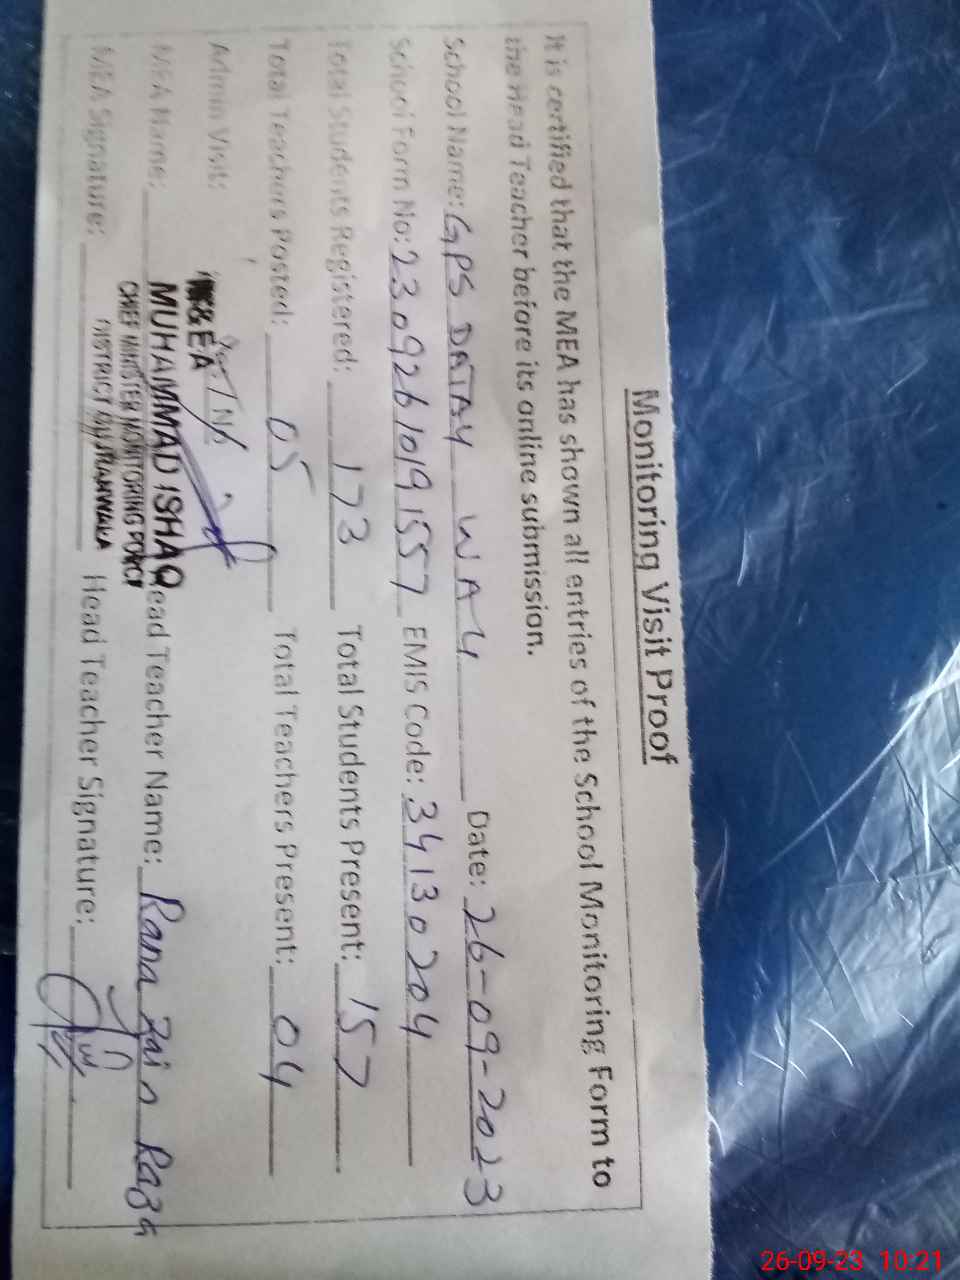 Monitoring Visit Proof
It is certified that the MEA has shown all entries of the School Monitoring Form to
the Head Teacher before its online submission.
School Name: GPS DATAY WALY Date: 26-09-2023
School Form No: 230926101915 57 EMIS Code: 34130204
Total Students Registered: 173 Total Students Present: 157
Total Teachers Posted: 05 Total Teachers Present: 04
Admin Visit:
M&EA
MEA Name: MUHAMMAD ISHAQ Head Teacher Name: Rana Zain Raza
CHIEF MINISTER MONITORING FORCE
DISTRICT GUJRANWALA
MEA Signature: Head Teacher Signature:
26-09-23 10:21